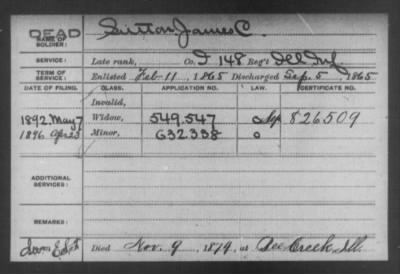 DEAD
NAME OF SOLDIER: Sutton James C.
SERVICE: Late rank, Co. I 148 Reg't Ill Inf
TERM OF SERVICE: Enlisted Feb 11, 1865 Discharged Sep. 5, 1865
DATE OF FILING. CLASS. APPLICATION NO. LAW. CERTIFICATE NO.
Invalid,
1892 May 7 Widow, 549.547 826509
1896 Apr 23 Minor, 632.338
ADDITIONAL SERVICES:
REMARKS:
Died Nov. 9, 1879, at Creek Ill.